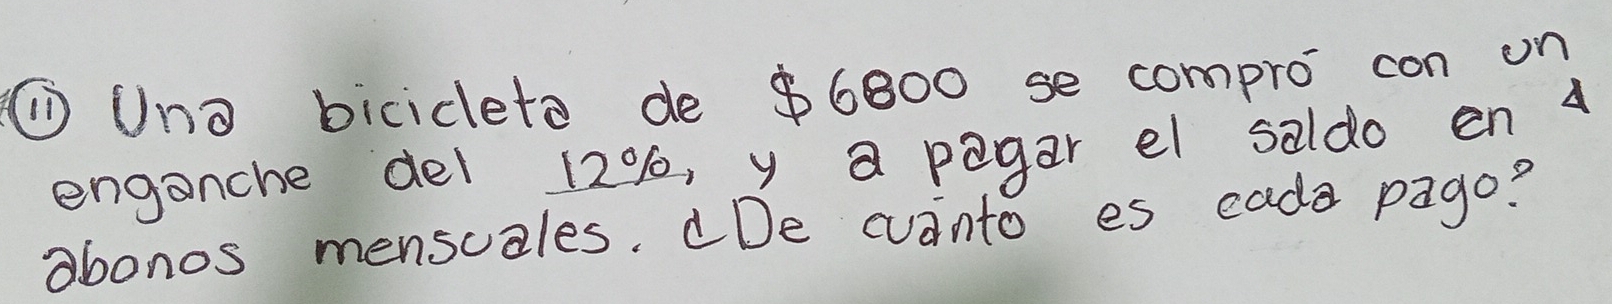 ⑪ Una bicicleta de $6800 se compró con un
enganche del 12%, y a pagar el saldo en 4
abonos mensuales. ¿De cuánto es cada pago?